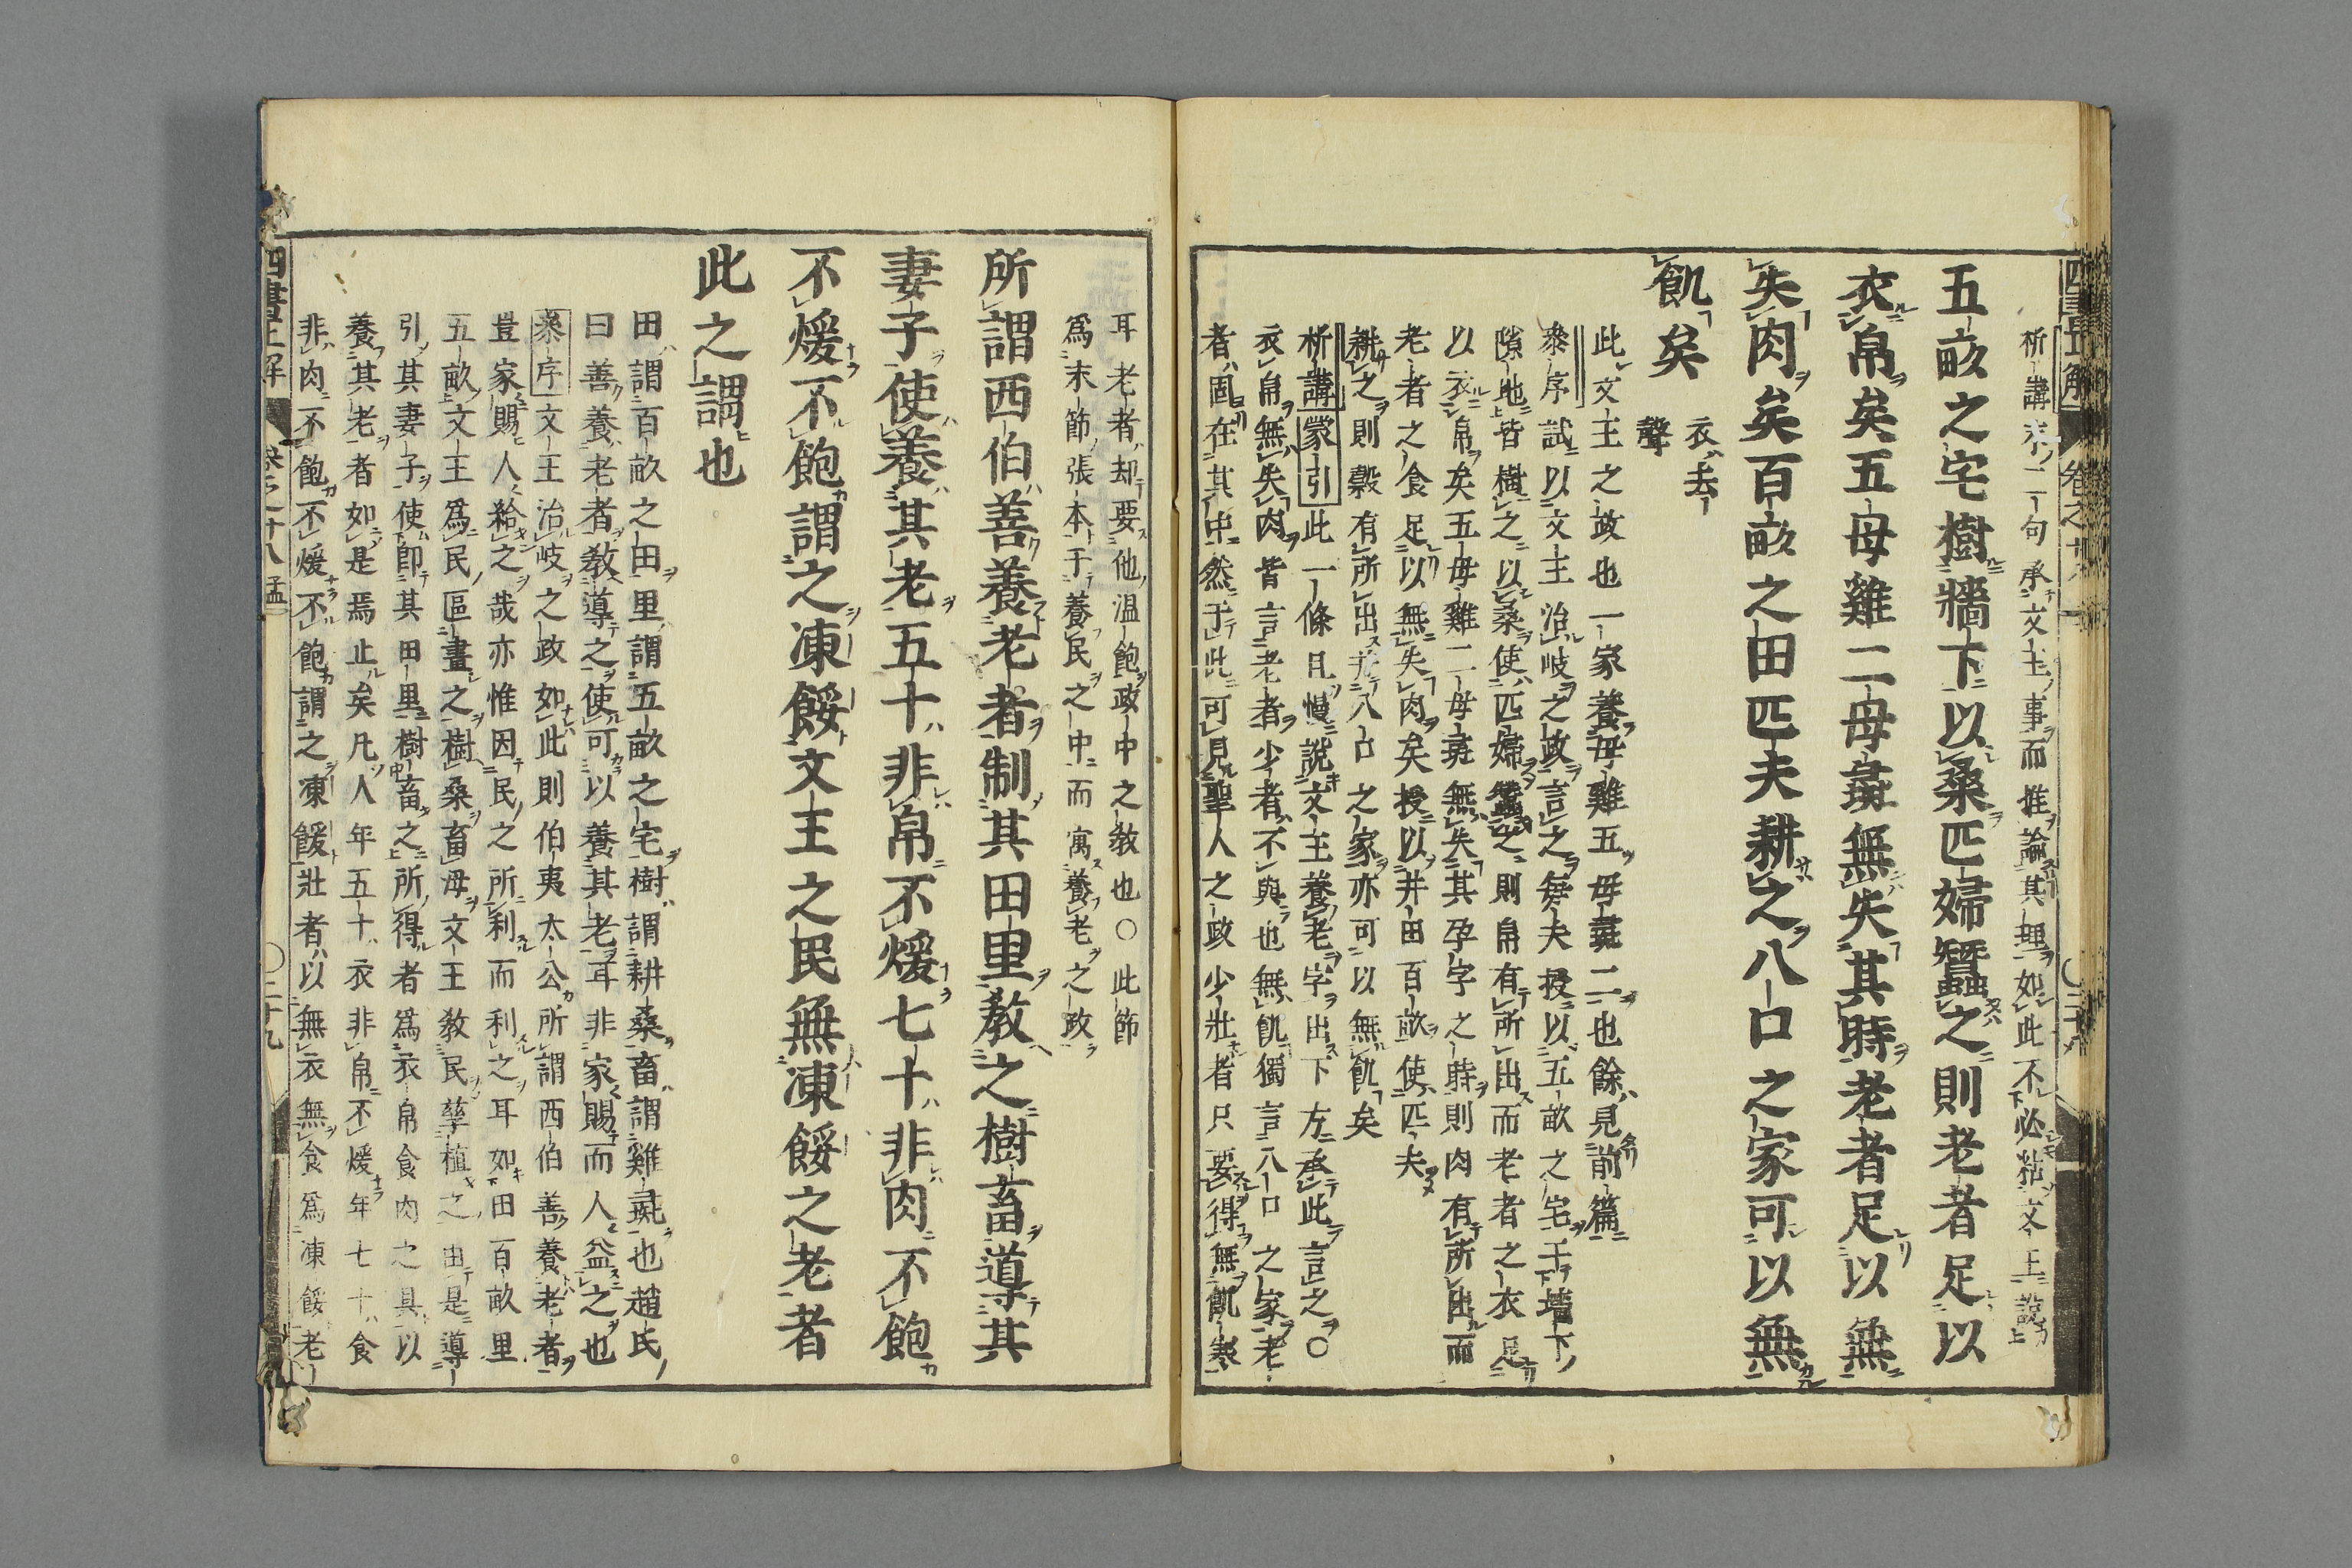 析講末二句承文王事而推論其理如此不必粘文王說
五畝之宅樹牆下以桑匹婦蠶之則老者足以
衣帛矣五母雞二母彘無失其時老者足以無
失肉矣百畝之田匹夫耕之八口之家可以無
飢矣
衣去
聲
此文王之政也一家養母雞五母彘二也餘見前篇
叅序試以文王治岐之政言之每夫授以五畝之宅于墻下
隙地皆樹之以桑使匹婦蠶之則帛有所出而老者之衣足
以衣帛矣五母雞二母彘無失其孕字之時則肉有所出而
老者之食足以無失肉矣授以井田百畝使匹夫
耕之則穀有所出八口之家亦可以無飢矣
析講蒙引此一條且慢說文王養老字出下方承此言之〇
衣帛無失肉皆言老者少者不與也無飢獨言八口之家老
者固在其中然于此可見聖人之政少壯者只要得無飢寒
耳老者却要他温飽政中之教也〇此節
爲末節張本于養民之中而寓養老之政
所謂西伯善養老者制其田里教之樹畜導其
妻子使養其老五十非帛不煖七十非肉不飽
不煖不飽謂之凍餒文王之民無凍餒之老者
此之謂也
田謂百畝之田里謂五畝之宅樹謂耕桑畜謂雞彘也趙氏
曰善養老者教導之使可以養其老耳非家賜而人益之也
叅序文王治岐之政如此則伯夷太公所謂西伯善養老者
豈家賜人給之哉亦惟因民之所利而利之耳如田百畝里
五畝文王爲民區畫之樹桑畜母文王教民孳植之由是導
引其妻子使卽其田里樹畜之所得者爲衣帛食肉之具以
養其老者如是焉止矣凡人年五十衣非帛不煖年七十食
非肉不飽不煖不飽謂之凍餒壯者以無衣無食爲凍餒老
四書正解
卷之十八孟
〇二十九